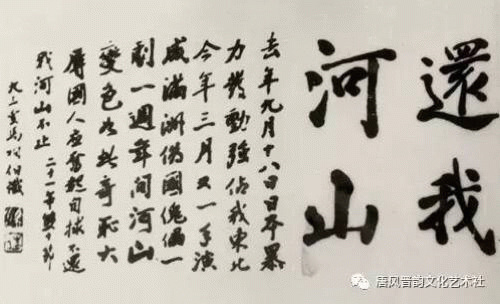 還我
河山
去年九月十八日日本暴
力發動強佔我東北
今年三月又一手演
成滿洲偽國傀儡一
劇一週年間河山
變色如此奇恥大
辱國人應奮起自救不還
我河山不止 二十一年雙十節
九三叟馬相伯識
唐风晋韵文化艺术社